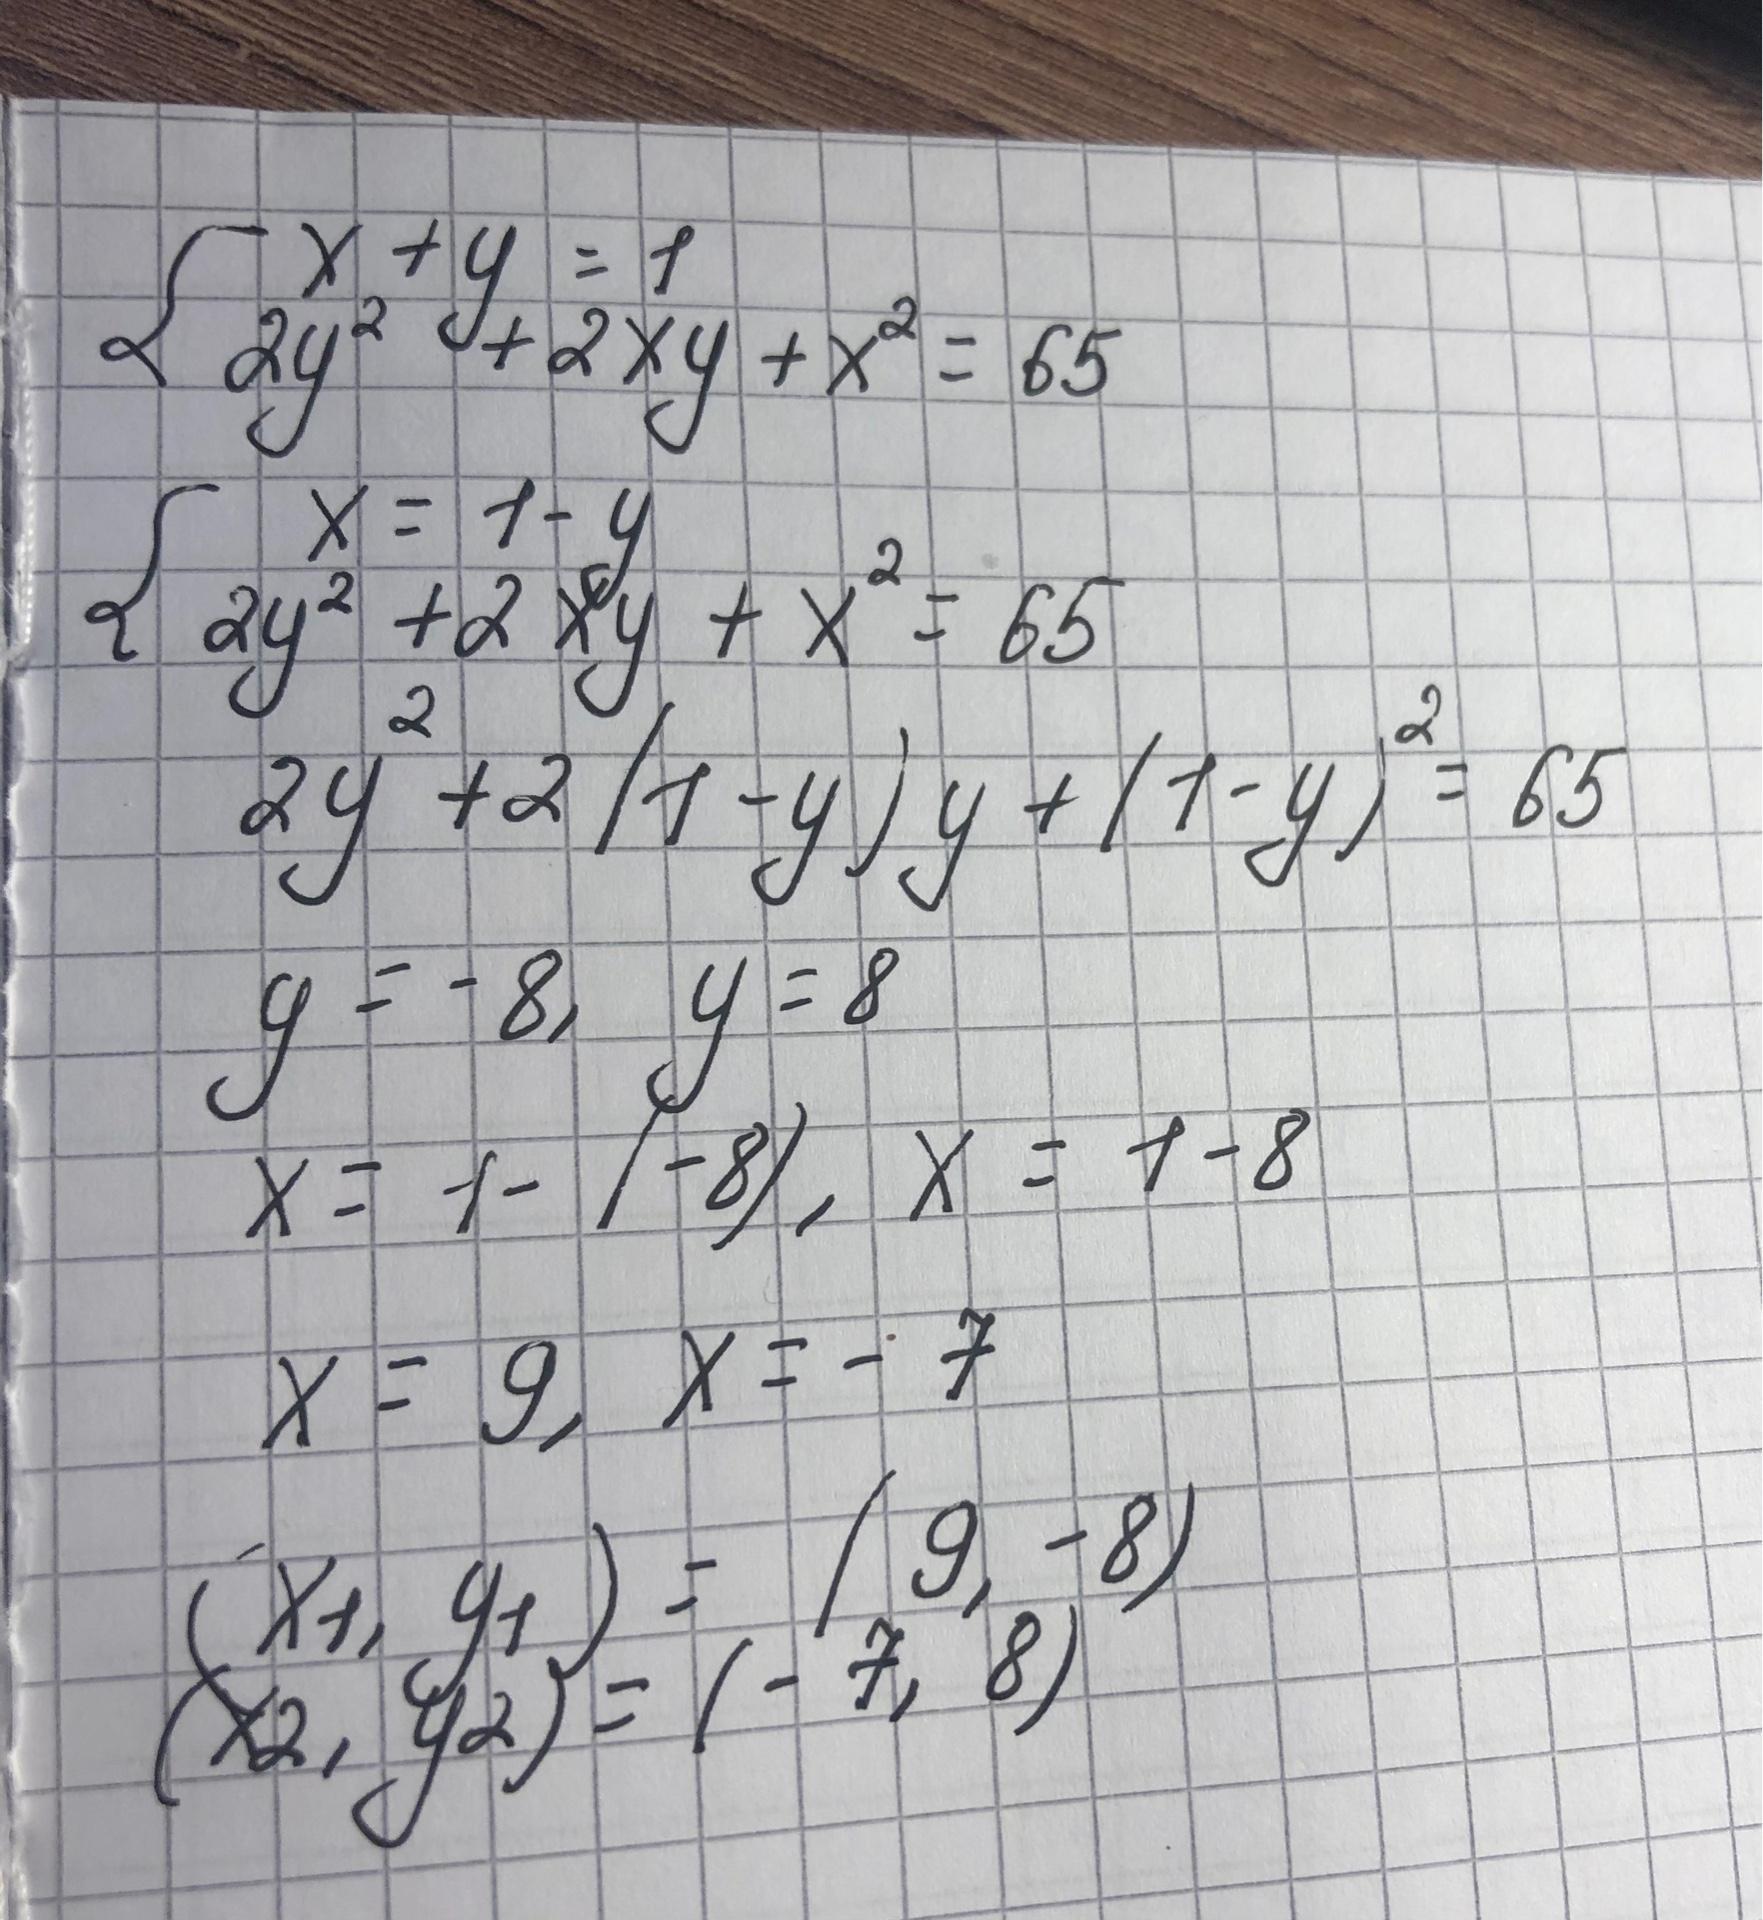 { x + y = 1
2y² + 2xy + x² = 65
{ x = 1 - y
2y² + 2xy + x² = 65
2y² + 2(1-y)y + (1-y)² = 65
y = -8, y = 8
x = 1 - (-8), x = 1 - 8
x = 9, x = - 7
(x1, y1) = (9, -8)
(x2, y2) = (-7, 8)